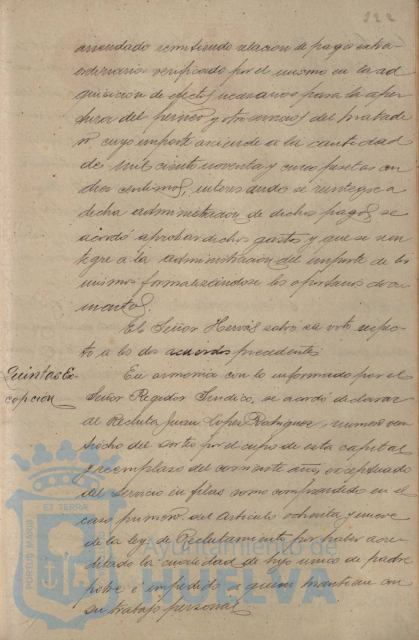 122
arrendado remitiendo relacion de pagos extra-
ordinarios verificado por el mismo en la ad-
quisicion de efectos necesarios para la aper-
tura del fieso y otros del matade-
ro, cuyo importe asciende a la cantidad
de mil ciento noventa y cinco pesetas con
diez centimos, interesando se reintegre a
dicha administracion de dichos pagos, se
acordó aprobar dichos gastos y que se rein-
tegre a la administracion del importe de los
mismos formalizandose los oportunos docu-
mentos.
El Señor Hervás salvó su voto respec-
to a los dos acuerdos precedentes.
Quintas Ex-
cepcion
En armonia con lo informado por el
Señor Regidor Sindico, se acordó declarar
al Recluta Juan Lopez Rodriguez, numero vein-
tiocho del sorteo por el cupo de esta capital
y reemplazo del corriente año, exceptuado
del Servicio en filas como comprendido en el
caso primero del articulo ochenta y nueve
de la ley de Reclutamiento por haber acre-
ditado la cualidad de hijo unico de padre
pobre é impedido a quien mantiene con
su trabajo personal.
PORTUS MARIS ET TERRAE
Ayuntamiento de
HUELVA